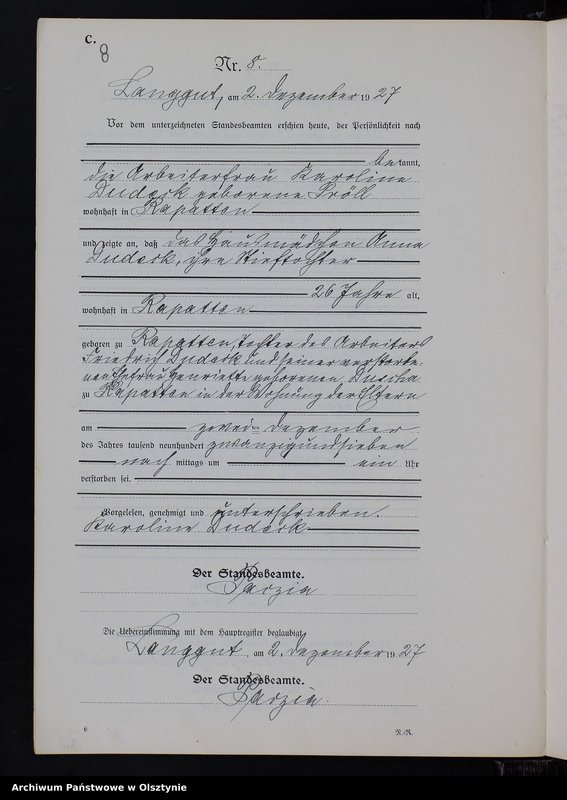 C.
8
Nr. 8.
Langgut, am 2. Dezember 1927
Vor dem unterzeichneten Standesbeamten erschien heute, der Persönlichkeit nach
bekannt,
die Arbeiterfrau Karoline
Dudeck geborene Pröll
wohnhaft in Rapatten
und zeigte an, daß das Hausmädchen Anna
Dudeck, ihre Stieftochter
26 Jahre alt,
wohnhaft in Rapatten
geboren zu Rapatten, Tochter des Arbeiters
Friedrich Dudeck und seiner verstorbe-
nen Ehefrau Henriette geborenen
zu Rapatten in der Wohnung der Eltern
am zweiten Dezember
des Jahres tausend neunhundert zwanzigundsieben
nach mittags um ein Uhr
verstorben sei.
Vorgelesen, genehmigt und unterschrieben.
Karoline Dudeck
Der Standesbeamte.
Parzia
Die Uebereinstimmung mit dem Hauptregister beglaubigt
Langgut, am 2. Dezember 1927
Der Standesbeamte.
Parzia.
6
R.-R.
Archiwum Państwowe w Olsztynie